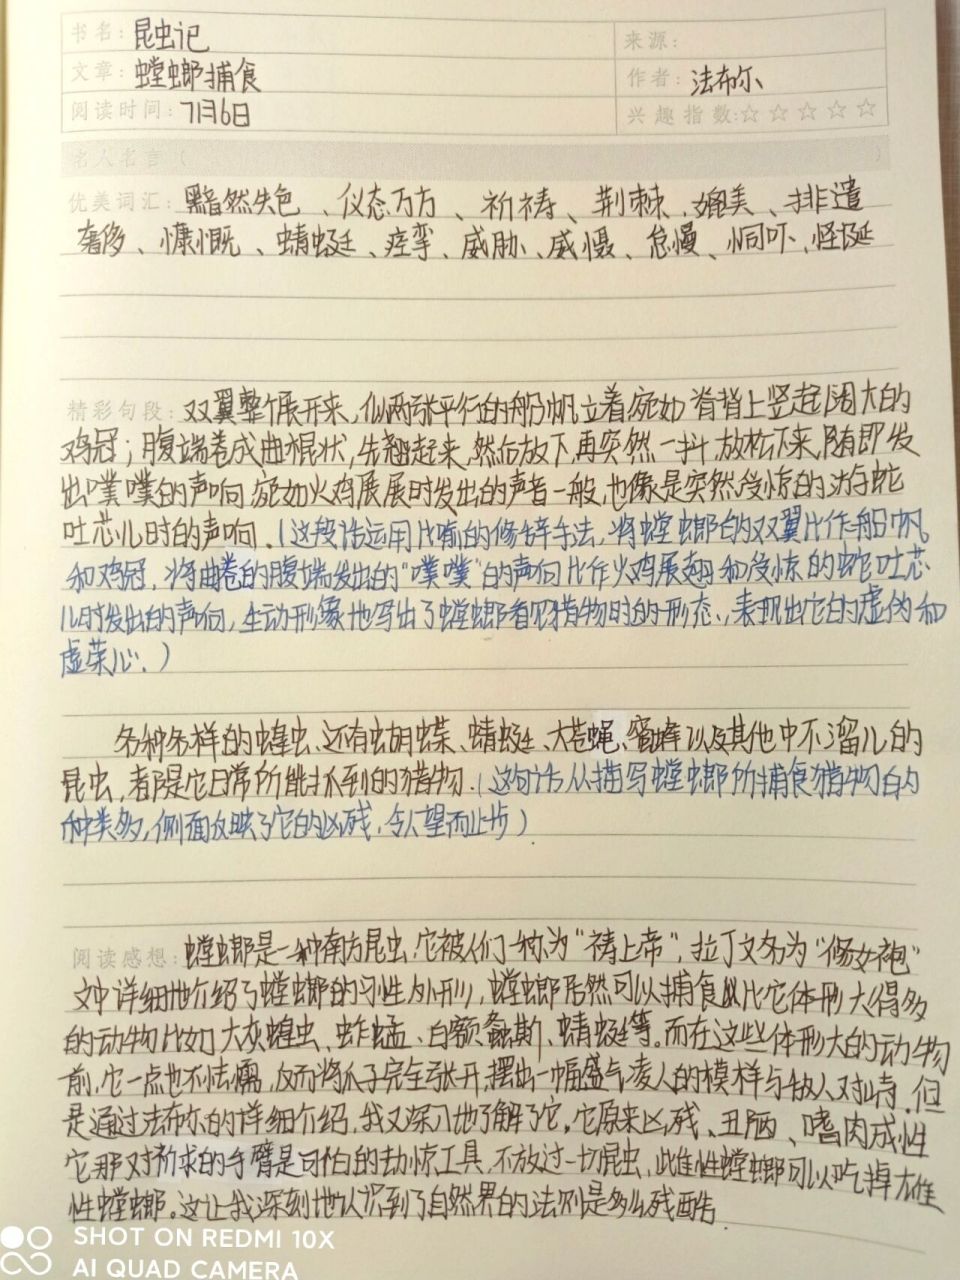 书名：昆虫记 来源：
文章：螳螂捕食 作者：法布尔
阅读时间：7月6日 兴趣指数：☆☆☆☆☆
名人名言（ ）
优美词汇：黯然失色、仪态万方、祈祷、荆棘、媲美、排遣
奢侈、慷慨、蜻蜓、痉挛、威胁、威慑、怠慢、恫吓、怪诞
精彩句段：双翼整个展开来，似两张平行的船帆立着宛如脊背上竖起阔大的
鸡冠；腹端卷成曲棍状，先翘起来，然后放下，再突然一抖，放松下来，随即发
出噗噗的声响，宛如火鸡展屏时发出的声音一般，也像是突然受惊的游蛇
吐芯儿时的声响.（这段话运用比喻的修辞手法，将螳螂的双翼比作船帆
和鸡冠，将曲卷的腹端发出的“噗噗”的声响比作火鸡展翅和受惊的蛇吐芯
儿时发出的声响，生动形象地写出了螳螂看见猎物时的形态，表现出它的虚伪和
虚荣心.）
各种各样的蝗虫、还有蝴蝶、蜻蜓、大苍蝇、蜜蜂以及其他中不溜儿的
昆虫，都是它日常所能抓到的猎物.（这句话从描写螳螂所捕食猎物的
种类多，侧面反映了它的凶残，令人望而止步）
阅读感想：螳螂是一种南方昆虫，它被人们称为“祷上帝”，拉丁文名为“修女袍”
文中详细地介绍了螳螂的习性、外形，螳螂居然可以捕食比它体形大得多
的动物比如大灰蝗虫、蚱蜢、白额螽斯、蜻蜓等。而在这些体形大的动物
前，它一点也不怯懦，反而将爪子完全张开，摆出一幅盛气凌人的模样与敌人对峙.但
是通过法布尔的详细介绍，我又深入地了解了它。它原来凶残、丑陋、嗜肉成性
它那对祈求的手臂是可怕的劫惊工具，不放过一切昆虫，雌性螳螂可以吃掉雄
性螳螂。这让我深刻地认识到了自然界的法则是多么残酷
SHOT ON REDMI 10X
AI QUAD CAMERA